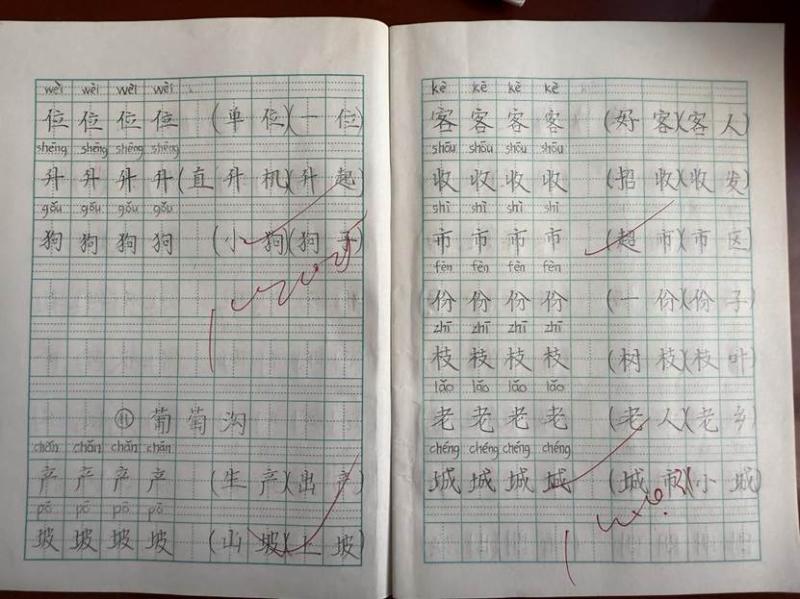 wèi wèi wèi wèi
位 位 位 位 (单位)(一位)
shēng shēng shēng shēng
升 升 升 升 (直升机)(升起)
gǒu gǒu gǒu gǒu
狗 狗 狗 狗 (小狗)(狗子)
⑪ 葡萄沟
chǎn chǎn chǎn chǎn
产 产 产 产 (生产)(出产)
pō pō pō pō
坡 坡 坡 坡 (山坡)(上坡)
kè kè kè kè
客 客 客 客 (好客)(客人)
shōu shōu shōu shōu
收 收 收 收 (招收)(收发)
shì shì shì shì
市 市 市 市 (超市)(市区)
fèn fèn fèn fèn
份 份 份 份 (一份)(份子)
zhī zhī zhī zhī
枝 枝 枝 枝 (树枝)(枝叶)
lǎo lǎo lǎo lǎo
老 老 老 老 (老人)(老乡)
chéng chéng chéng chéng
城 城 城 城 (城市)(小城)